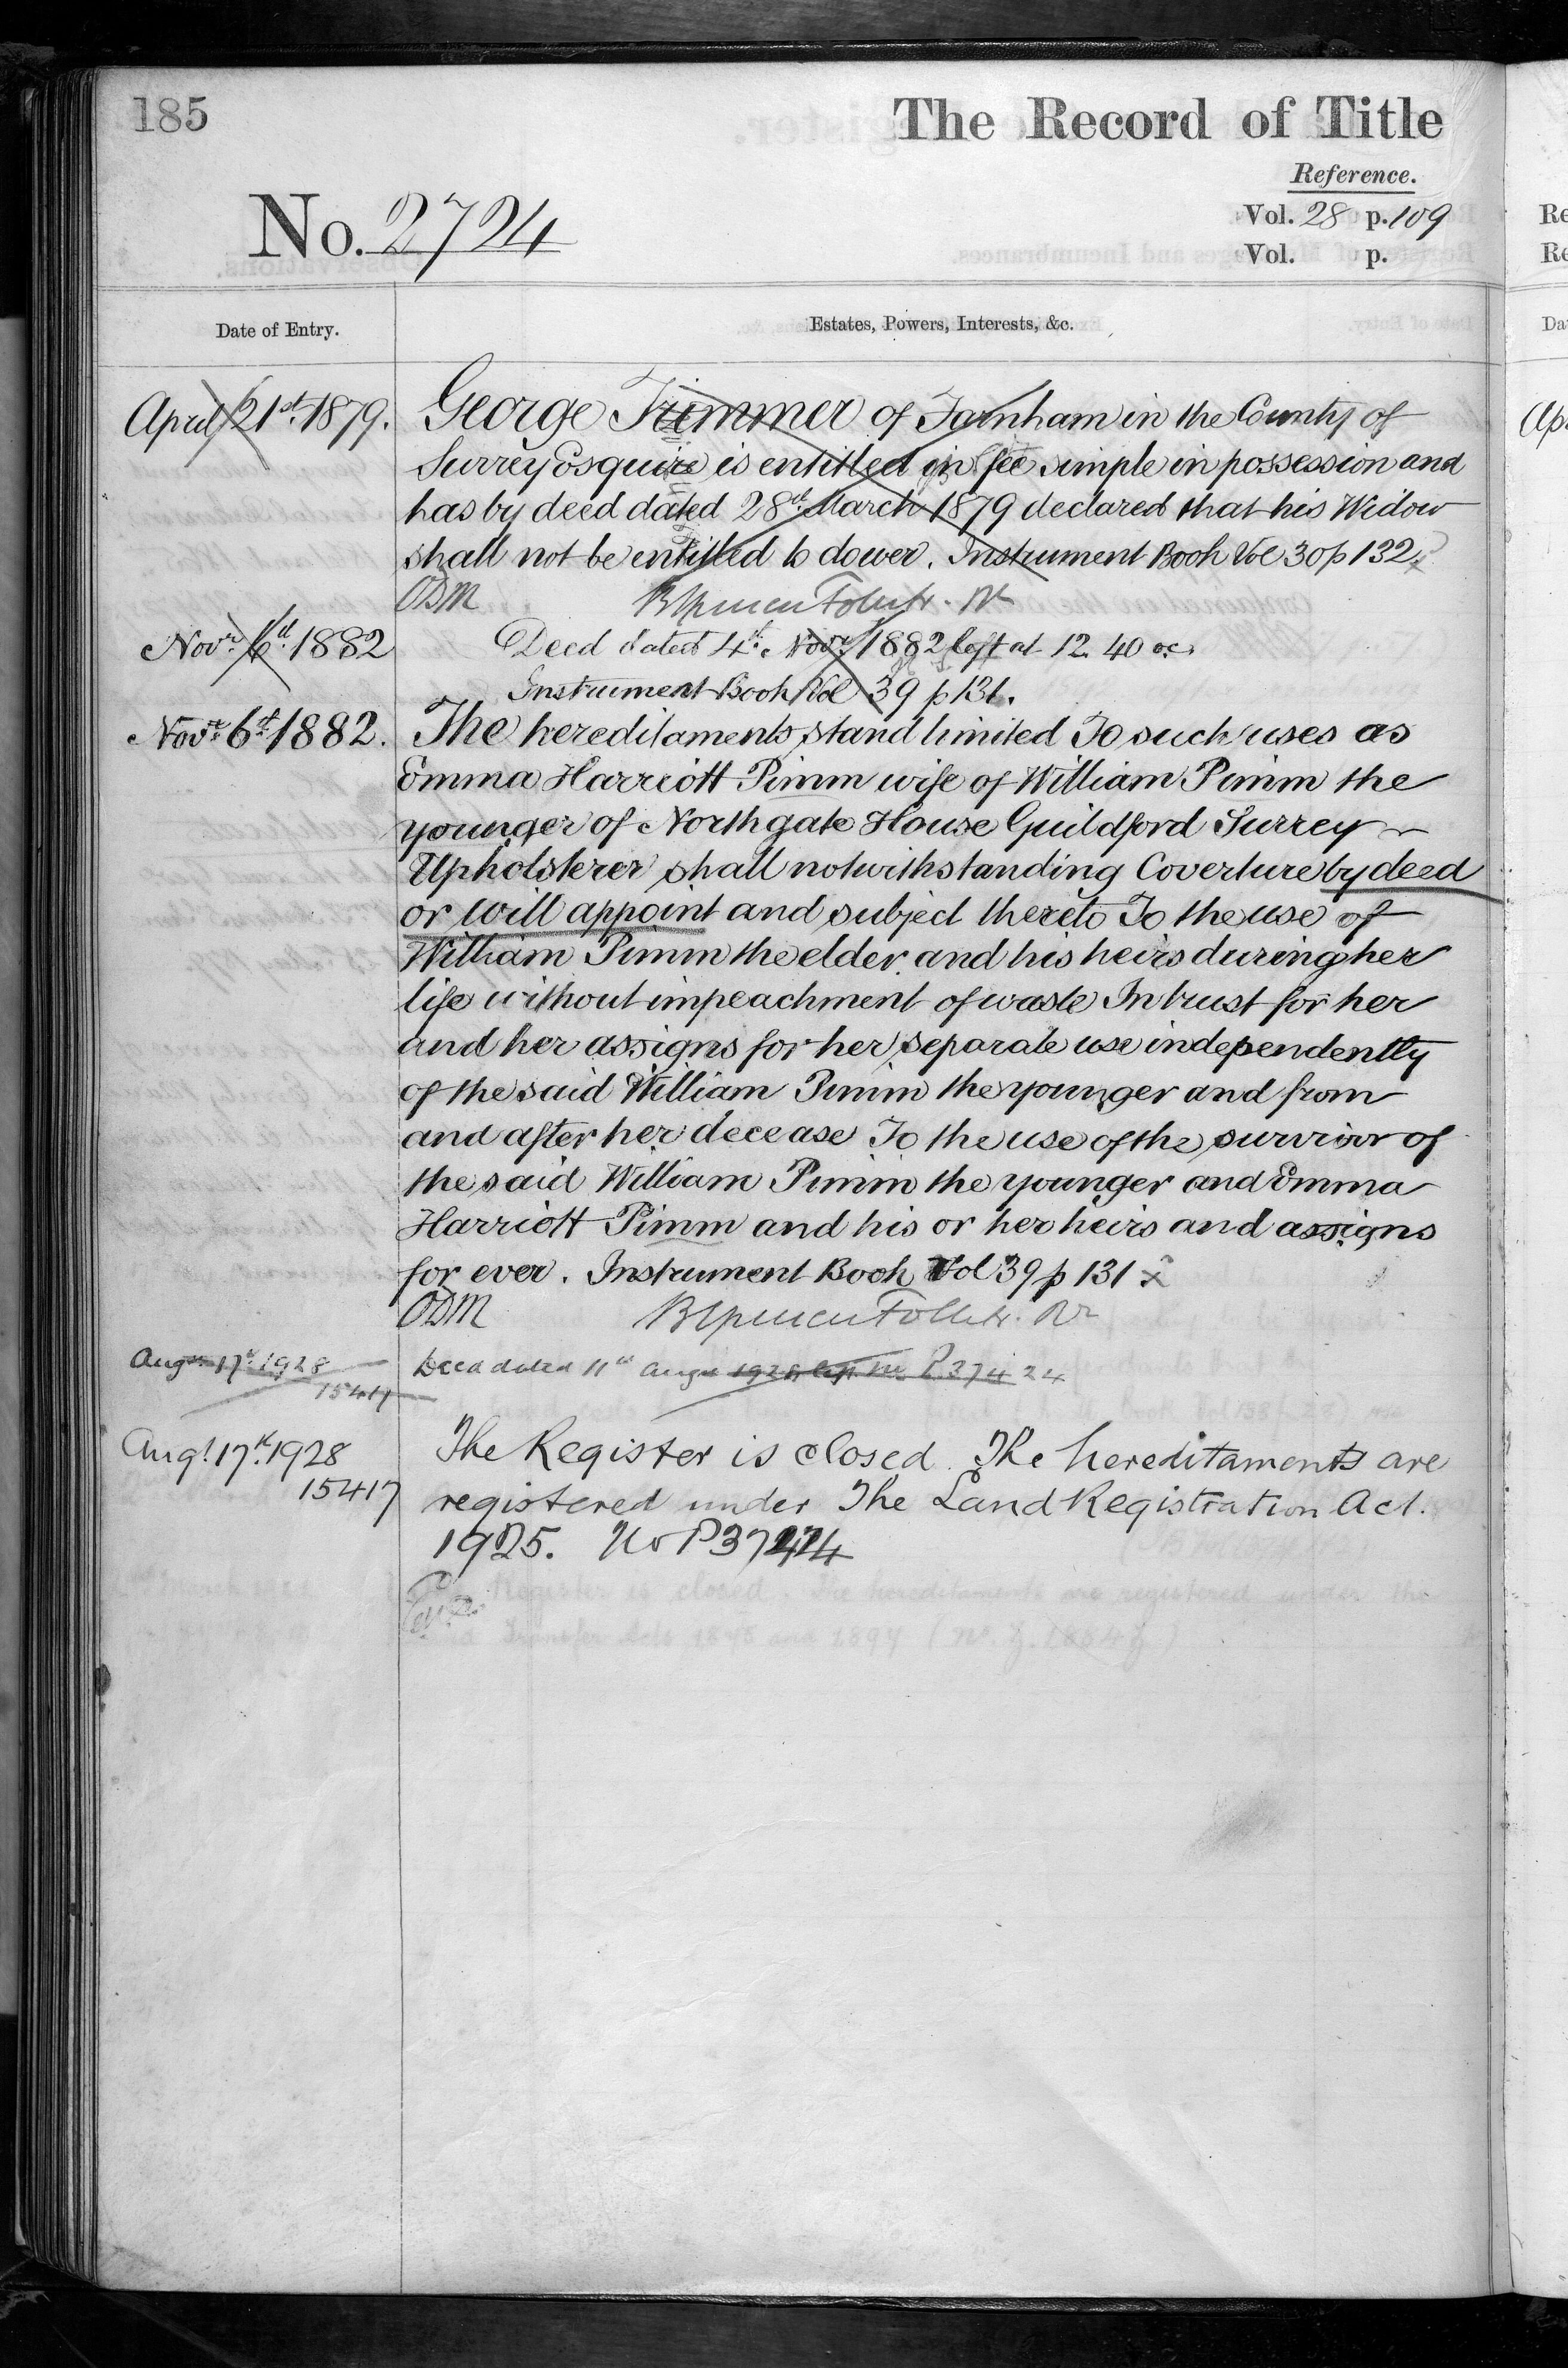 185
The Record of Title
Reference.
No. 2724
Vol. 28 p. 109
Vol. p.
Date of Entry.
Estates, Powers, Interests, &c.
April 21st 1879. George Trimmer of Farnham in the County of
Surrey Esquire is entitled in fee simple in possession and
has by deed dated 28th March 1879 declared that his Widow
shall not be entitled to dower. Instrument Book Vol 30 p 132.
ODM
Novr 6th 1882 Deed dated 4th Novr 1882 left at 12.40 oc.
Instrument Book Vol 39 p 131.
Novr 6th 1882. The hereditaments stand limited To such uses as
Emma Harriott Pimm wife of William Pimm the
younger of Northgate House Guildford Surrey
Upholsterer shall notwithstanding Coverture by deed
or will appoint and subject thereto To the use of
William Pimm the elder and his heirs during her
life without impeachment of waste In trust for her
and her assigns for her separate use independently
of the said William Pimm the younger and from
and after her decease To the use of the survivor of
the said William Pimm the younger and Emma
Harriott Pimm and his or her heirs and assigns
for ever. Instrument Book Vol 39 p 131
ODM
Augt 17th 1928 Deed dated 11th Augt 1928
15417
Augt 17th 1928 The Register is closed. The hereditaments are
15417 registered under The Land Registration Act.
1925. No P37424
Re
Re
Da
Ap